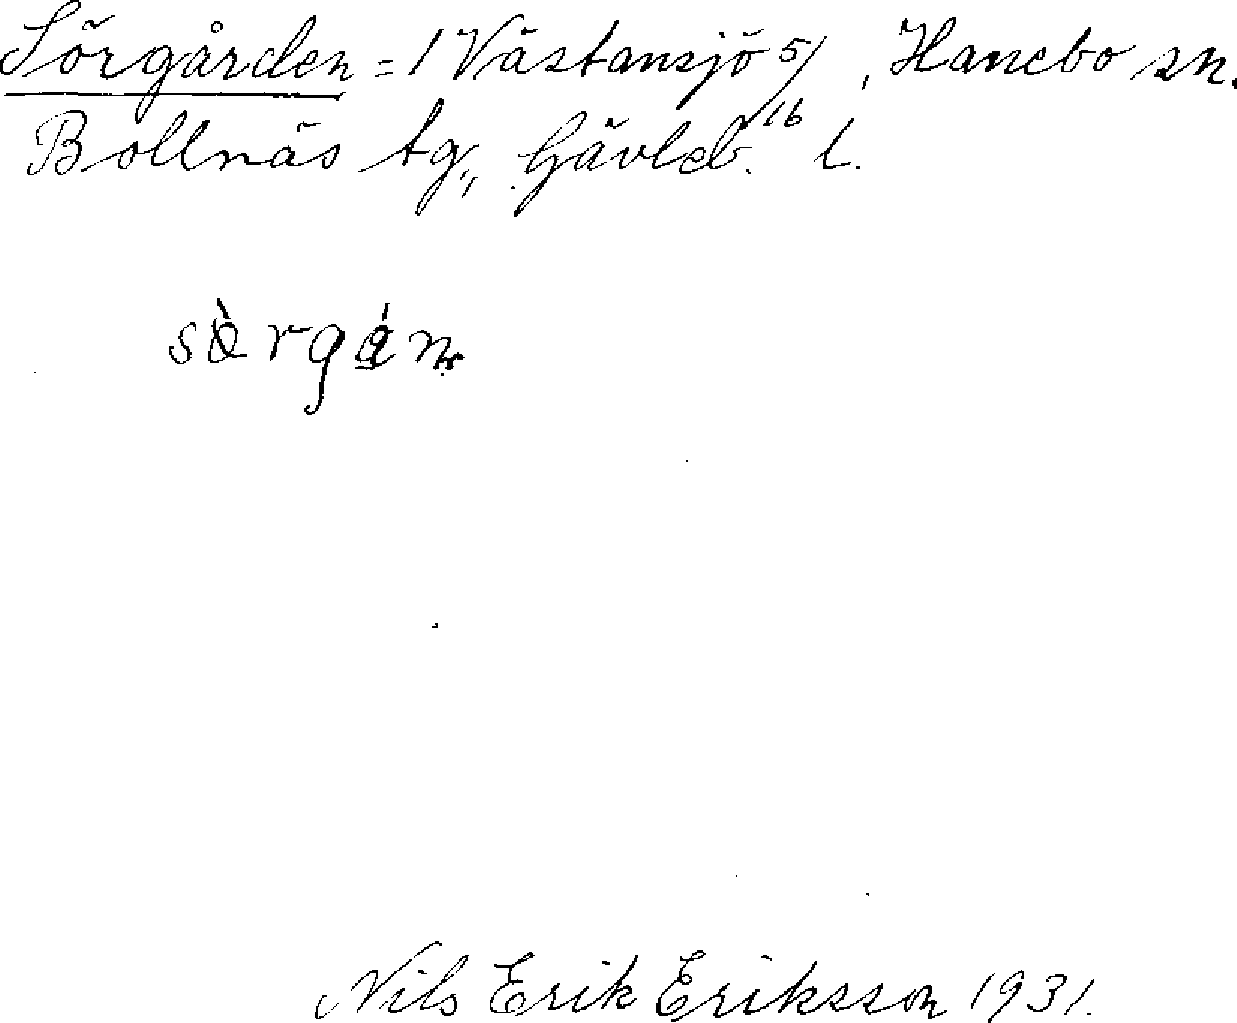 Sörgården = 1 Västansjö 5/16, Hanebo sn.
Bollnäs tg., Gävleb. l.
sö̀rgá̱n
Nils Erik Eriksson 1931.